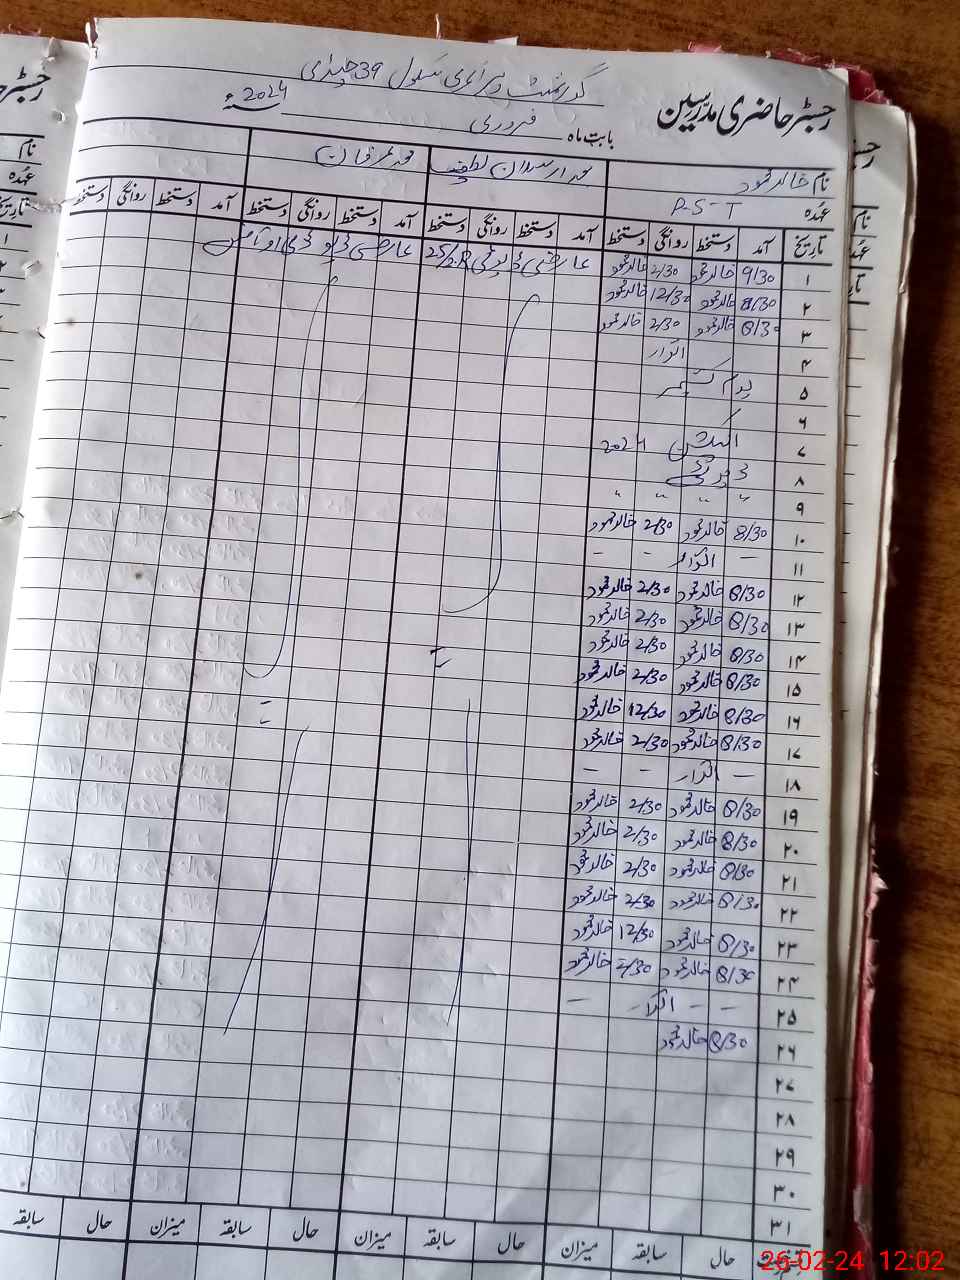 گورنمنٹ پرائمری سکول 39 چپڑی
رجسٹر حاضری مدرسین
بابت ماہ فروری 2024
نام خالد محمود محمد ارسلان لطیف محمد عرفان
عہدہ P-S-T
تاریخ آمد دستخط روانگی دستخط آمد دستخط روانگی دستخط آمد دستخط روانگی دستخط آمد دستخط روانگی دستخط
۱ 9/30 خالد محمود 2/30 خالد محمود عارضی ڈیوٹی عارضی ڈیوٹی
۲ 8/30 خالد محمود 12/30 خالد محمود
۳ 8/30 خالد محمود 2/30 خالد محمود
۴ اتوار
۵ یوم کشمیر
۶
۷ الیکشن 2024
۸ ڈیوٹی
۹ " " " "
۱۰ 8/30 خالد محمود 2/30 خالد محمود
۱۱ – اتوار – –
۱۲ 8/30 خالد محمود 2/30 خالد محمود
۱۳ 8/30 خالد محمود 2/30 خالد محمود
۱۴ 8/30 خالد محمود 2/30 خالد محمود
۱۵ 8/30 خالد محمود 2/30 خالد محمود
۱۶ 8/30 خالد محمود 12/30 خالد محمود
۱۷ 8/30 خالد محمود 2/30 خالد محمود
۱۸ – اتوار – –
۱۹ 8/30 خالد محمود 2/30 خالد محمود
۲۰ 8/30 خالد محمود 2/30 خالد محمود
۲۱ 8/30 خالد محمود 2/30 خالد محمود
۲۲ 8/30 خالد محمود 2/30 خالد محمود
۲۳ 8/30 خالد محمود 12/30 خالد محمود
۲۴ 8/30 خالد محمود 2/30 خالد محمود
۲۵ – – اتوار – –
۲۶ 8/30 خالد محمود
۲۷
۲۸
۲۹
۳۰
۳۱
حال سابقہ میزان حال سابقہ میزان حال سابقہ میزان حال سابقہ
26-02-24 12:02